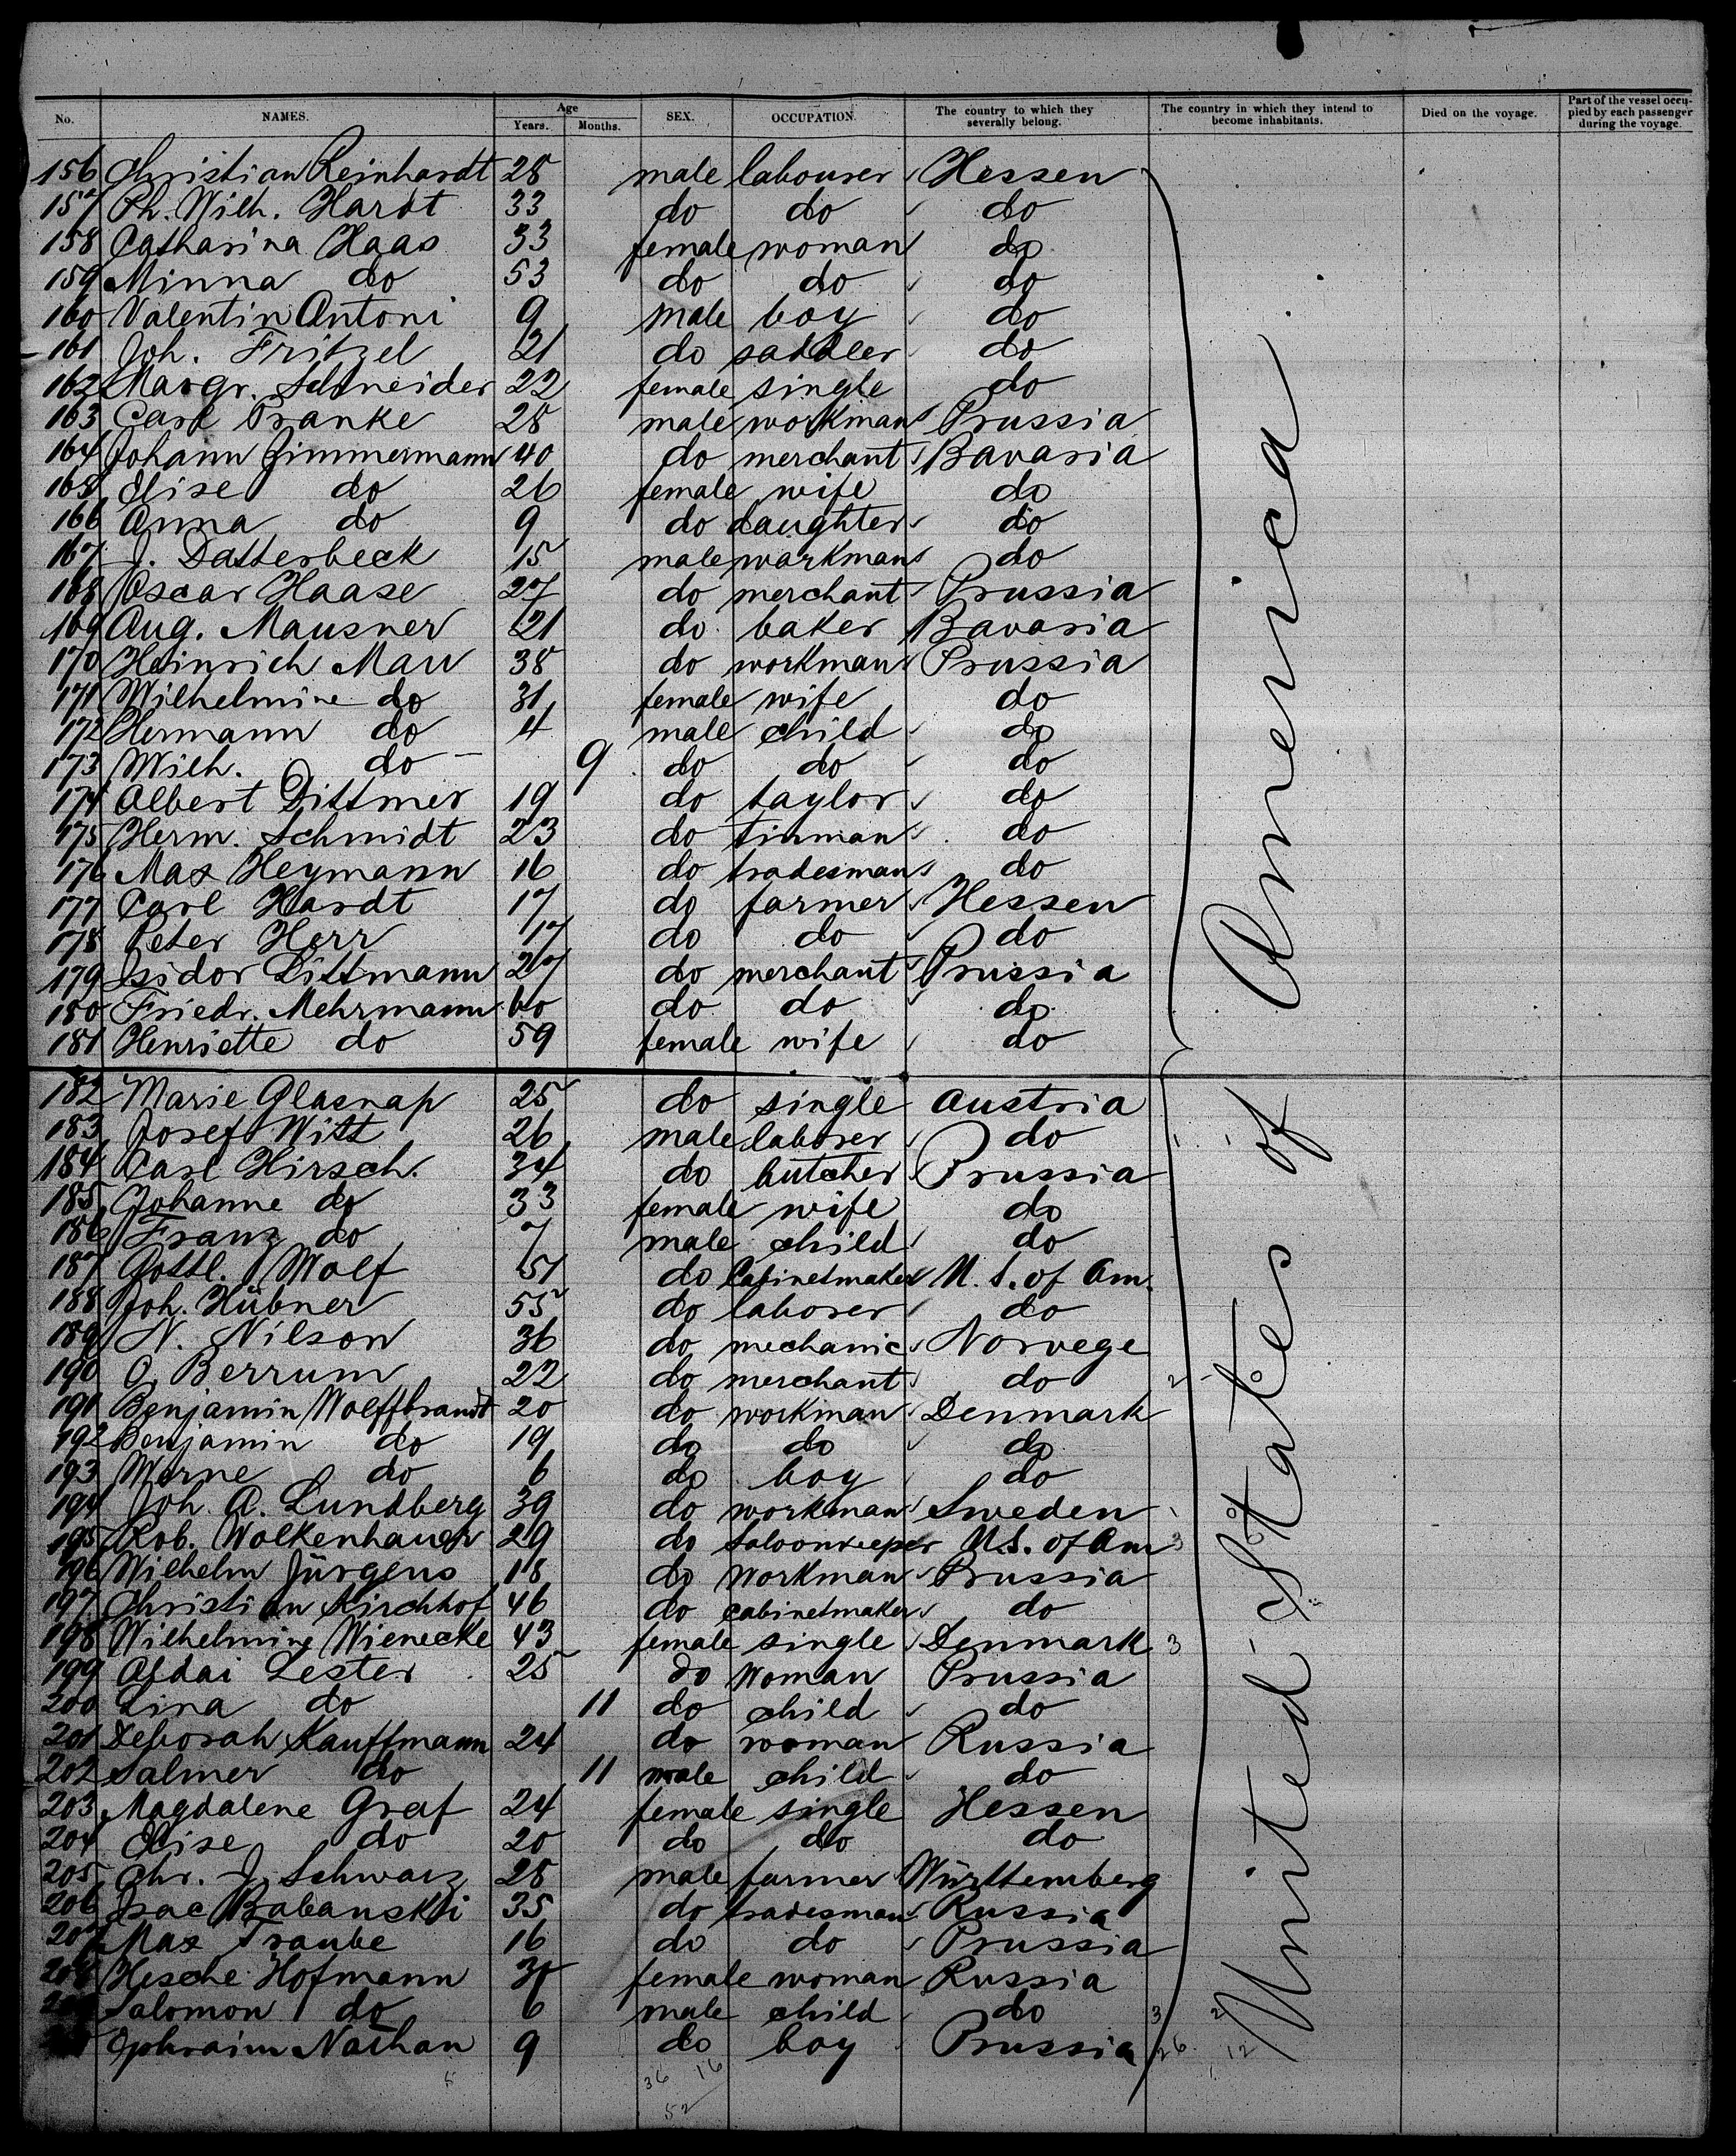 No. NAMES. Age Years. Months. SEX. OCCUPATION. The country to which they severally belong. The country in which they intend to become inhabitants. Died on the voyage. Part of the vessel occupied by each passenger during the voyage.
156 Christian Reinhardt 28 male labourer Hessen
157 Ph. Wilh. Hardt 33 do do do
158 Catharina Haas 33 female woman do
159 Minna do 53 do do do
160 Valentin Antoni 9 male boy do
161 Joh. Fritzel 21 do saddler do
162 Margr. Schneider 22 female single do
163 Carl Franke 28 male workman Prussia
164 Johann Zimmermann 40 do merchant Bavaria
165 Elise do 26 female wife do
166 Anna do 9 do daughter do
167 J. Datterbeck 15 male workman do
168 Oscar Haase 27 do merchant Prussia
169 Aug. Mausner 21 do baker Bavaria
170 Heinrich Marr 38 do workman Prussia
171 Wilhelmine do 31 female wife do
172 Hermann do 4 male child do
173 Wilh. do - 9 do do do
174 Albert Dittmer 19 do taylor do
175 Herm. Schmidt 23 do tinman do
176 Max Heymann 16 do tradesman do
177 Carl Hardt 17 do farmer Hessen
178 Peter Herr 17 do do do
179 Isidor Littmann 27 do merchant Prussia
180 Friedr. Mehrmann 60 do do do
181 Henriette do 59 female wife do
182 Marie Glasnap 25 do single Austria
183 Josef Witt 26 male laborer do
184 Carl Hirsch. 34 do butcher Prussia
185 Johanne do 33 female wife do
186 Franz do 7 male child do
187 Gottl. Wolf 51 do Cabinetmaker U. S. of Am.
188 Joh. Hübner 55 do laborer do
189 N. Nilson 36 do mechanic Norvege
190 O. Berrum 22 do merchant do
191 Benjamin Wolffbrandt 20 do workman Denmark
192 Benjamin do 19 do do do
193 Werne do 6 do boy do
194 Joh. A. Lundberg 39 do workman Sweden
195 Rob. Wolkenhauer 29 do Saloonkeeper U.S. of Am 3
196 Wilhelm Jürgens 18 do Workman Prussia
197 Christian Kirchhof 46 do cabinetmaker do
198 Wilhelmine Wienecke 43 female single Denmark 3
199 Lester 25 do Woman Prussia
200 Lina do 11 do child do
201 Deborah Kauffmann 24 do woman Russia
202 Salmer do 11 male child do
203 Magdalene Graf 24 female single Hessen
204 Elise do 20 do do do
205 Chr. J. Schwarz 28 male farmer Württemberg
206 Isac Babanski 35 do tradesman Russia
207 Max Traube 16 do do Prussia
208 Hesche Hofmann 30 female woman Russia
Salomon do 6 male child do 3 2
Ephraim Nathan 9 do boy Prussia 26 12
36 16
52
United-States of America.